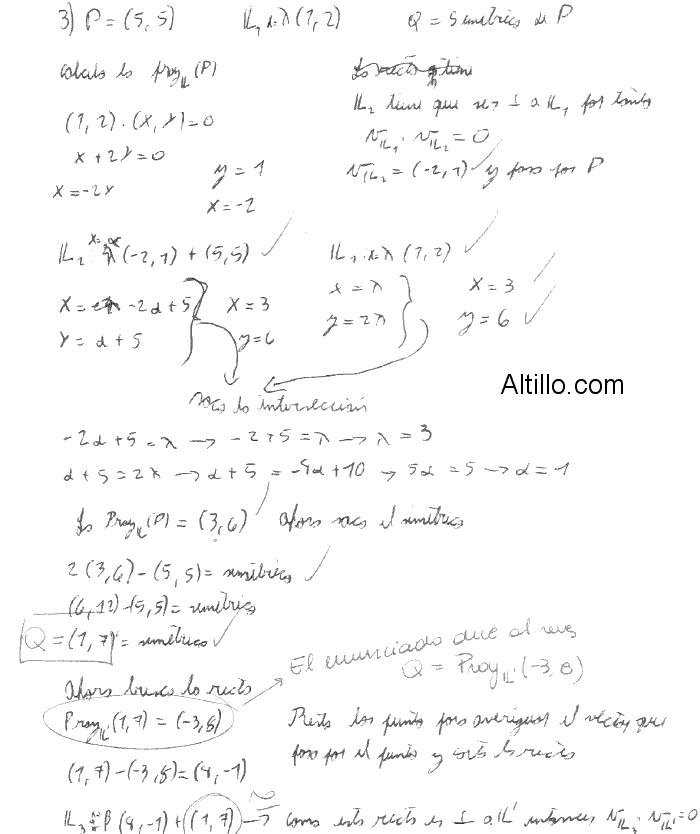 3) P = (5, 5)   𝕃₁: λ (1, 2)   Q = Simétrico de P
calculo la proy_𝕃 (P)
𝕃₂ tiene que ser ⊥ a 𝕃₁, por tanto
(1, 2) · (X, Y) = 0
N_𝕃₁ · N_𝕃₂ = 0
x + 2Y = 0
y = 1
N_𝕃₂ = (-2, 1) y pasa por P
X = -2Y
x = -2
𝕃₂ x= α (-2, 1) + (5, 5)   𝕃₁ : x = λ (1, 2)
X = -2α + 5   X = 3   x = λ   X = 3
Y = α + 5   y = 6   y = 2λ   y = 6
Altillo.com
saco la intersección
-2α + 5 = λ → -2+5 = λ → λ = 3
α + 5 = 2λ → α + 5 = -4α + 10 → 5α = 5 → α = 1
La Proy_𝕃 (P) = (3, 6)   Ahora saco el simétrico
2 (3, 6) - (5, 5) = simétrico
(6, 12) - (5, 5) = simétrico
Q = (1, 7) = simétrico
El enunciado dice al revés
Q = Proy_𝕃' (-3, 8)
Ahora busco la recta
Proy_𝕃' (1, 7) = (-3, 8)
Resto los puntos para averiguar el vector que
pasa por el punto y la recta
(1, 7) - (-3, 8) = (4, -1)
𝕃₃ = β (4, -1) + (1, 7) → como esta recta es ⊥ a 𝕃' entonces N_𝕃₃ · N_𝕃' = 0